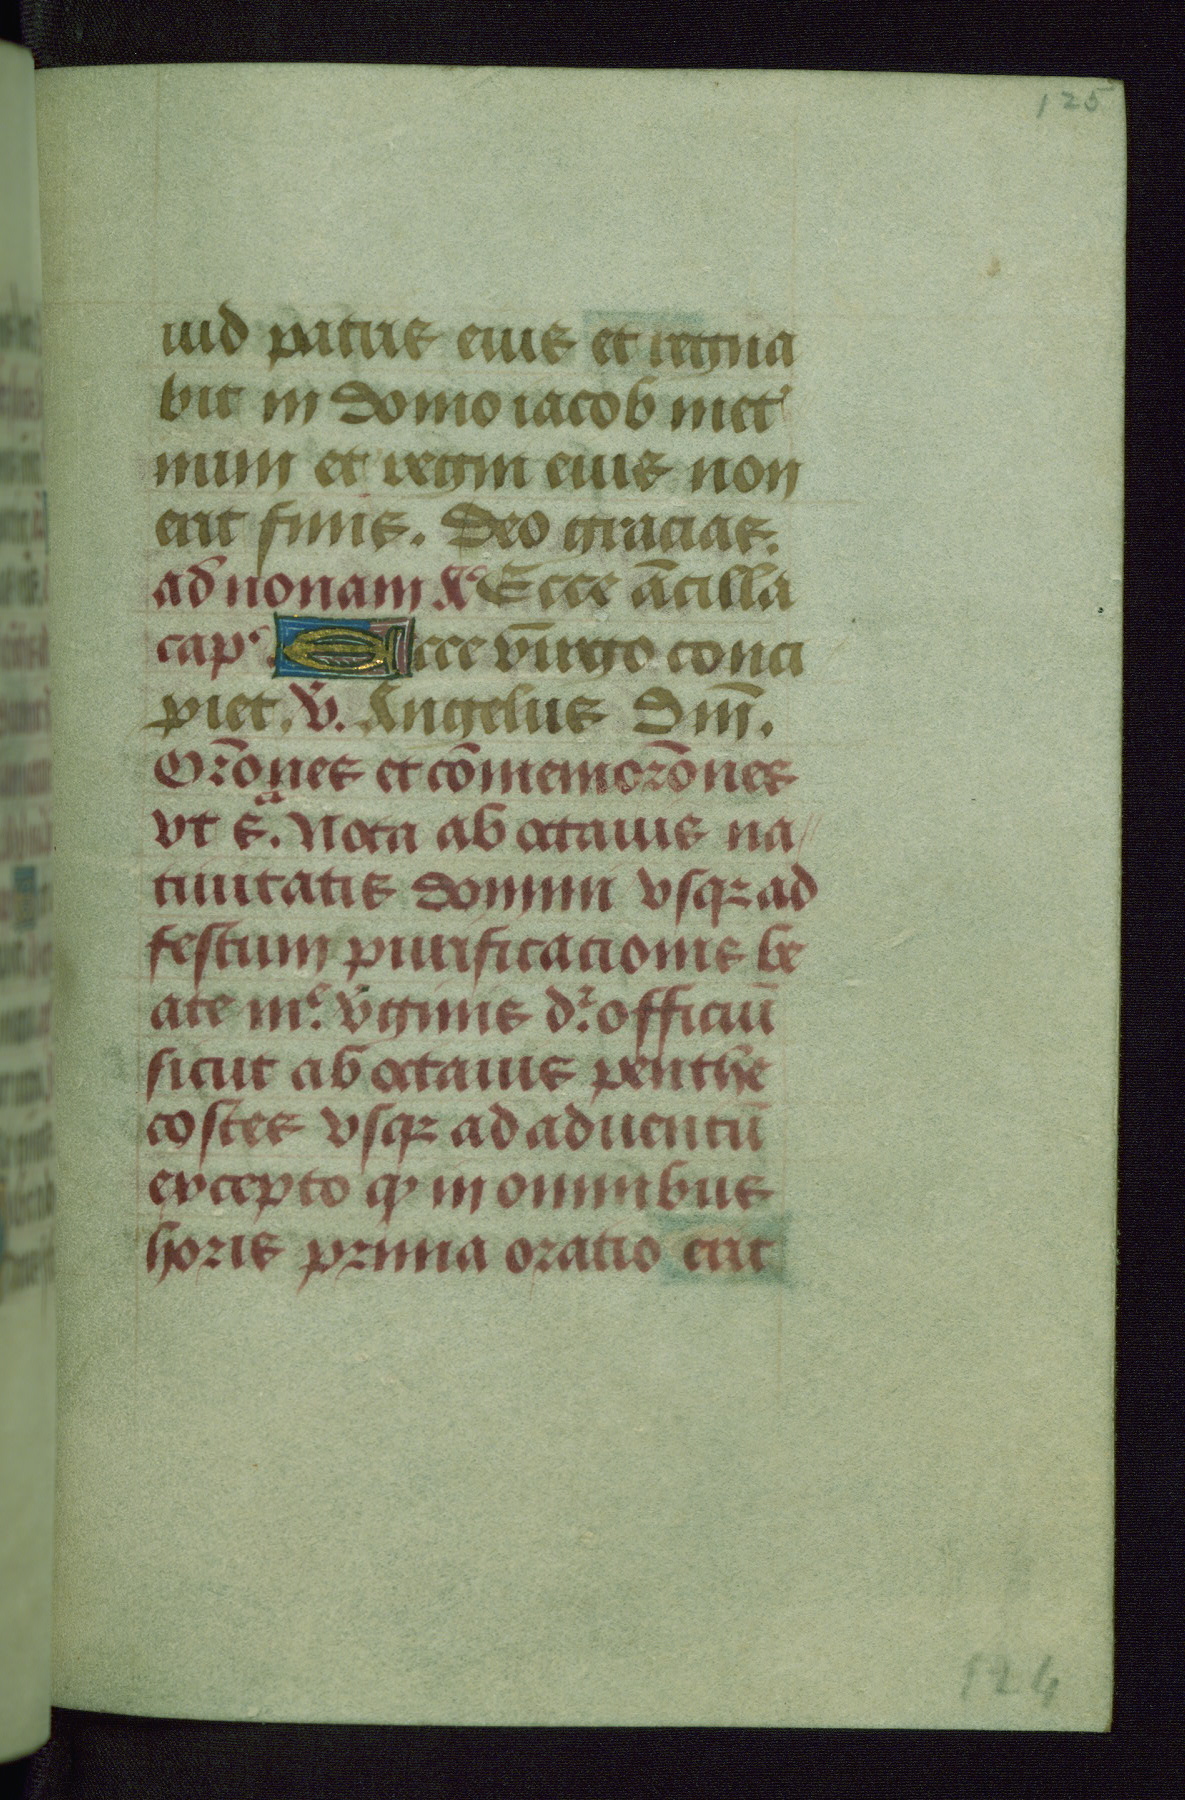 125
uid patris eius et regna
bit in domo iacob in et
num et regni eius non
erit finis. Deo gracias.
ad nonam Añ Ecce ācilla
cap. Ecce v̄irgo conci
piet. v̄. Angelus Dm̄.
Or̄ones et cōmemor̄ones
vt s̄. Nota ab octauis na
tiuitatis domini vsqꝫ ad
festum purificacionis be
ate m̄ v̄ginis dr̄ officiū
sicut ab octauis penthe
costes vsqꝫ ad aduentū
excepto ꝙ in omnibus
horis prima oratio erit
124